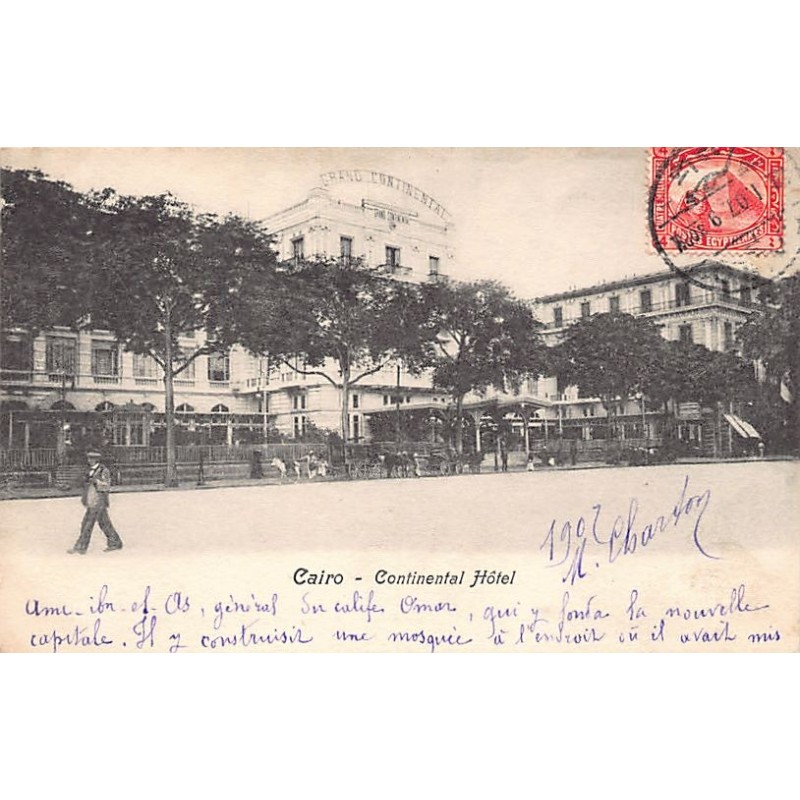 GRAND CONTINENTAL
1907
M. Charton
Cairo - Continental Hôtel
Amr-ibn-el-As, général du calife Omar, qui y fonda la nouvelle
capitale. Il y construisit une mosquée à l'endroit où il avait mis